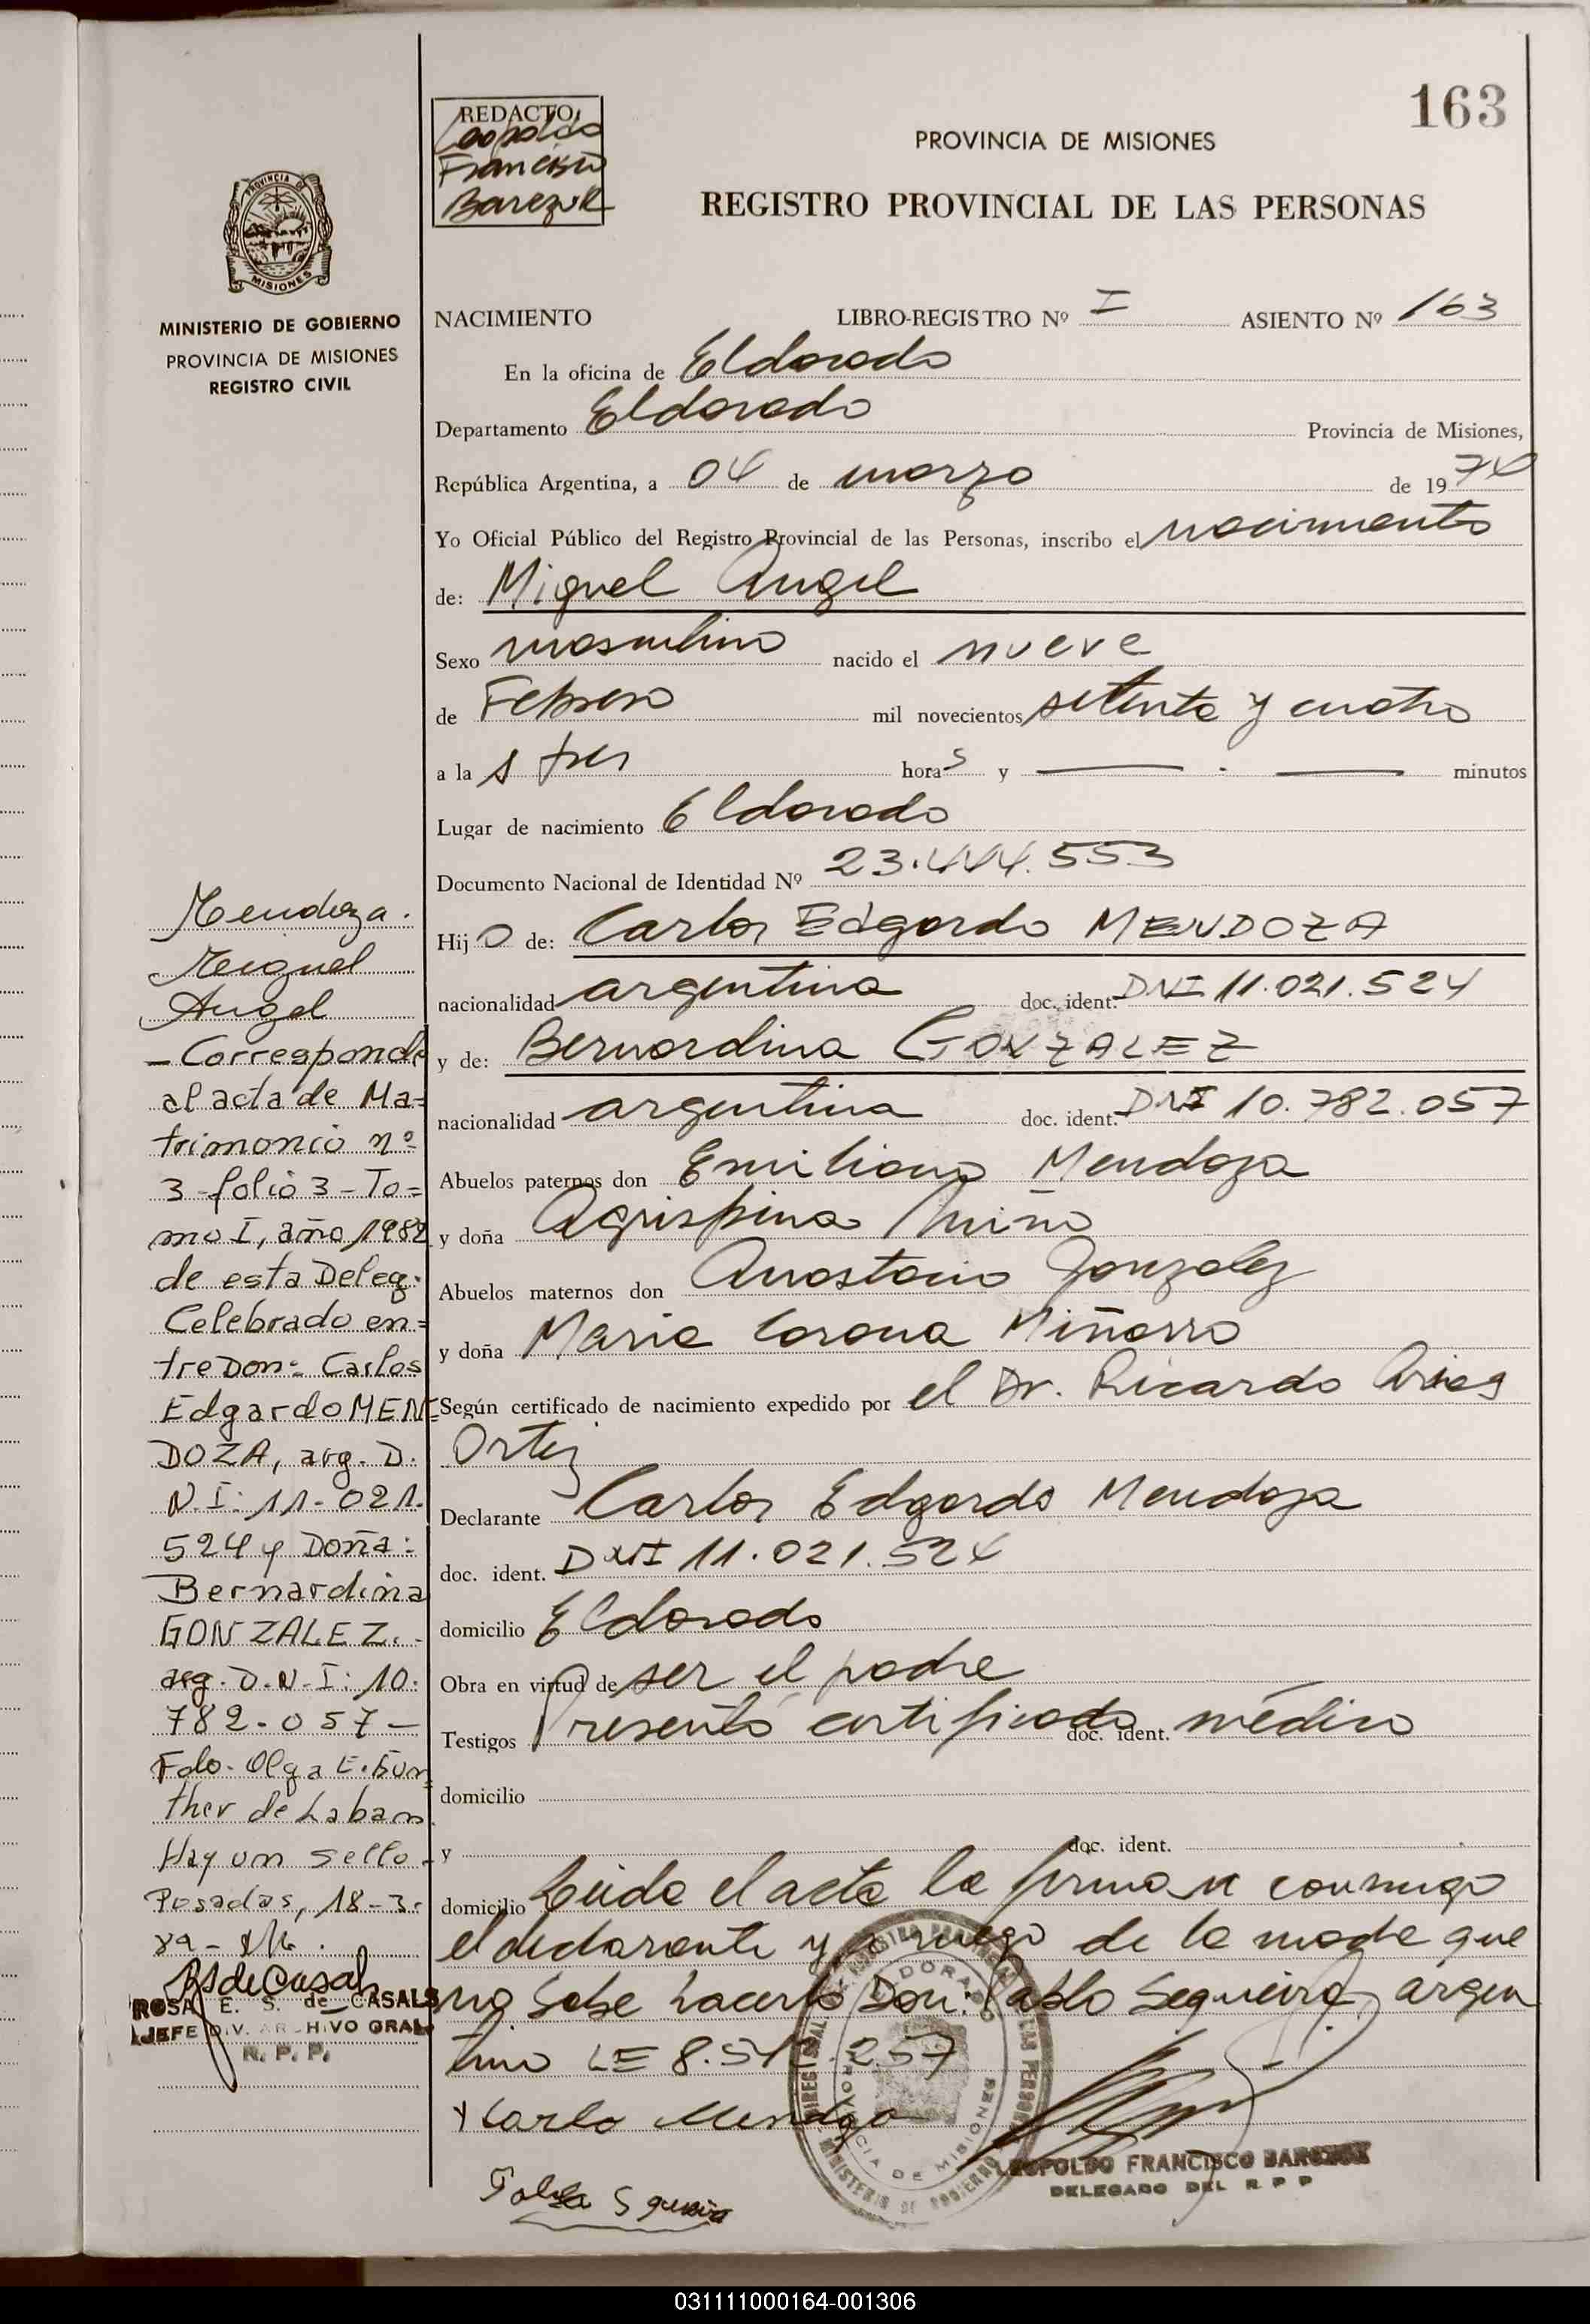 163
REDACTO,
Leopoldo
Francisco
PROVINCIA DE MISIONES
REGISTRO PROVINCIAL DE LAS PERSONAS
PROVINCIA DE
MISIONES
MINISTERIO DE GOBIERNO
PROVINCIA DE MISIONES
REGISTRO CIVIL
NACIMIENTO LIBRO-REGISTRO Nº I ASIENTO Nº 163
En la oficina de Eldorado
Departamento Eldorado Provincia de Misiones,
República Argentina, a 04 de marzo de 1974
Yo Oficial Público del Registro Provincial de las Personas, inscribo el nacimiento
de: Miguel Angel
Sexo masculino nacido el nueve
de Febrero mil novecientos setenta y cuatro
a la s tres horas y — . — minutos
Lugar de nacimiento Eldorado
Documento Nacional de Identidad Nº 23.444.553
Hijo de: Carlos Edgardo MENDOZA
nacionalidad argentina doc. ident. DNI 11.021.524
y de: Bernardina GONZALEZ
nacionalidad argentina doc. ident. DNI 10.782.057
Abuelos paternos don Emiliano Mendoza
y doña Agrispina Miño
Abuelos maternos don Anastacio Gonzalez
y doña Maria Corona Miñarro
Según certificado de nacimiento expedido por el Dr. Ricardo Arias
Ortiz
Declarante Carlos Edgardo Mendoza
doc. ident. DNI 11.021.524
domicilio Eldorado
Obra en virtud de ser el padre
Testigos Presentó certificado doc. ident. médico
domicilio
y doc. ident.
domicilio Leida el acta la firman conmigo
el declarante y a ruego de la madre que
no sabe hacerlo Don: Pablo Sequeira, argen
tino LE 8.54 .257
Carlo Mendoza
LEOPOLDO FRANCISCO
DELEGADO DEL R P P
ELDORADO
PROVINCIA DE MISIONES
MINISTERIO DE GOBIERNO
Mendoza.
Miguel
Angel
- Corresponde
al acta de Ma=
trimonio nº
3 - folio 3 - To=
mo I, año 1982
de esta Deleg.
Celebrado en=
tre Don: Carlos
Edgardo MEN=
DOZA, arg. D.
N.I: 11-021.
524 y Doña:
Bernardina
GONZALEZ. -
arg. D.N.I: 10.
782-057-
Fdo. Olga E. Gun
ther de Laban
Hay un sello -
Posadas, 18-3-
ROSA E. S. de CASALS
JEFE DIV. ARCHIVO GRAL
R. P. P.
031111000164-001306